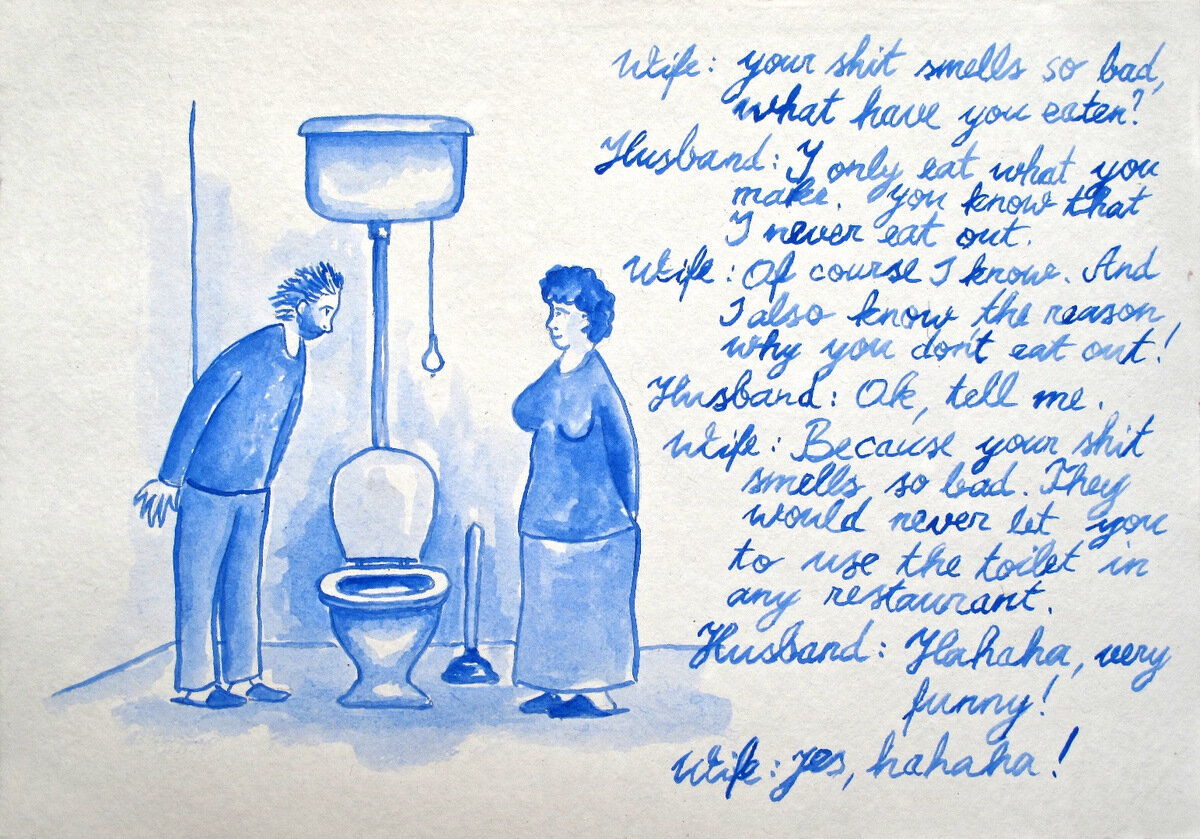 Wife: your shit smells so bad,
what have you eaten?
Husband: I only eat what you
make. You know that
I never eat out.
Wife: Of course I know. And
I also know the reason
why you don't eat out!
Husband: Ok, tell me.
Wife: Because your shit
smells so bad. They
would never let you
to use the toilet in
any restaurant.
Husband: Hahaha, very
funny!
Wife: Yes, hahaha!